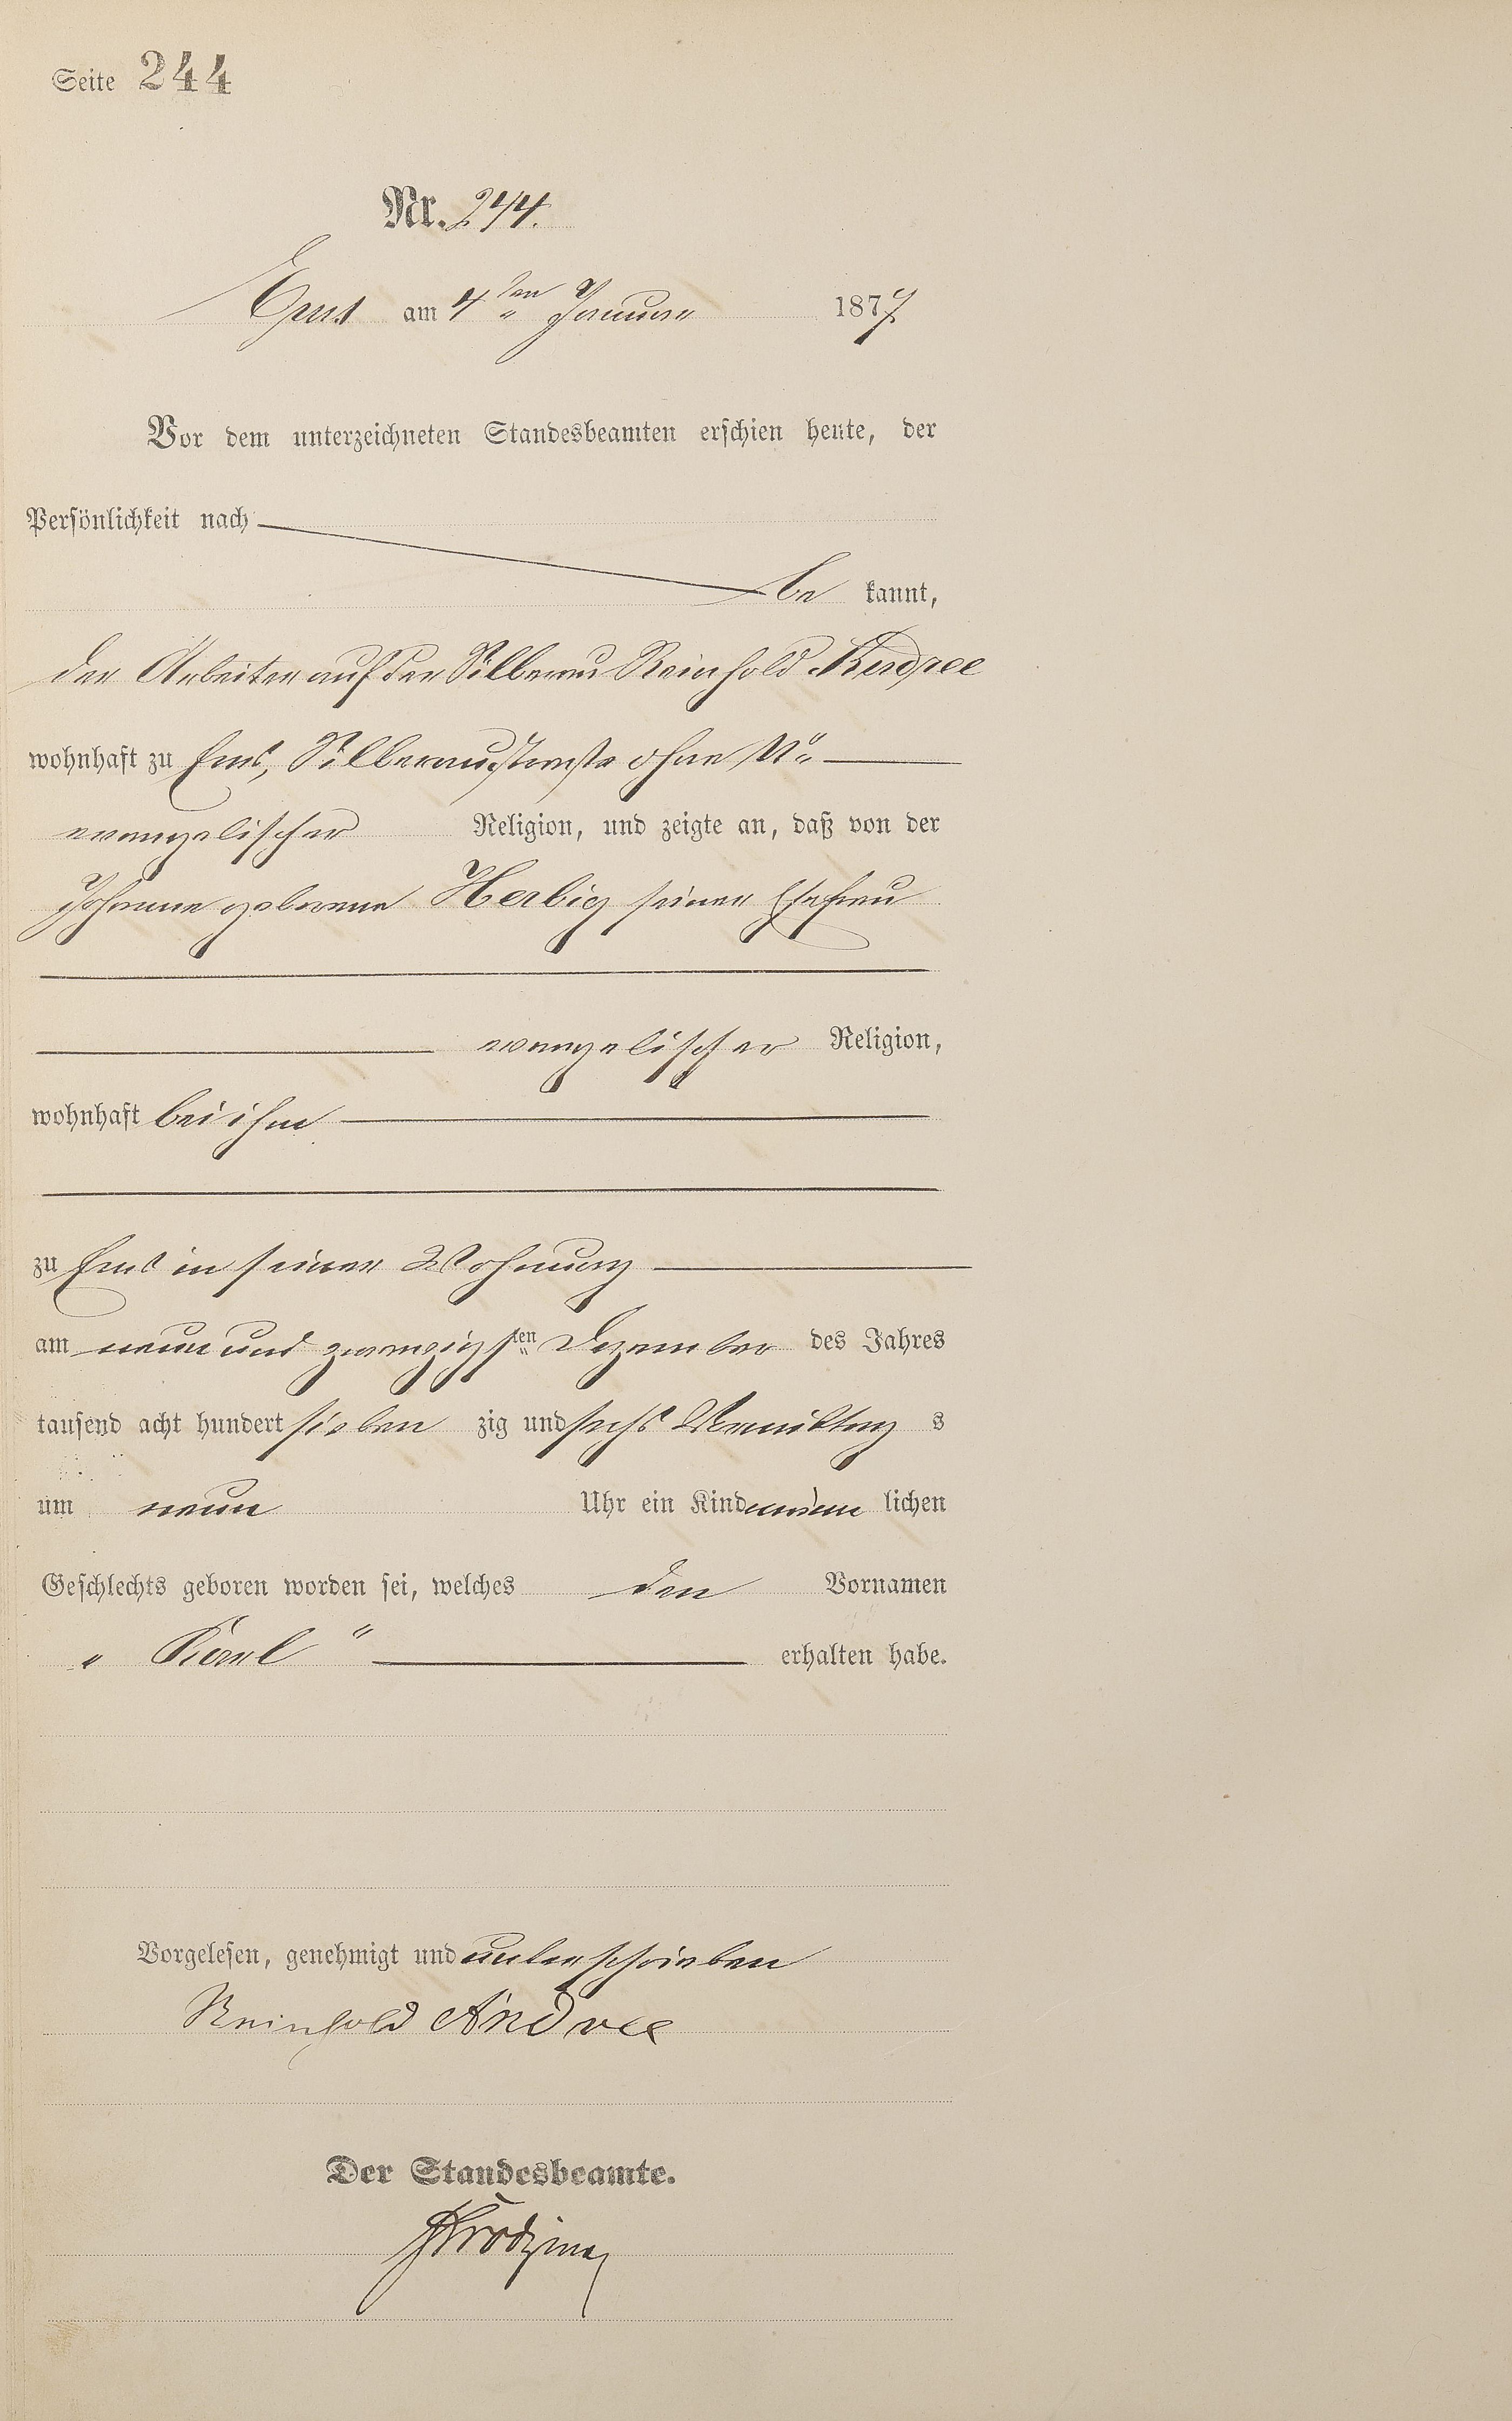 Seite 244
Nr. 244.
Ems am 4ten Januar 1877
Vor dem unterzeichneten Standesbeamten erschien heute, der
Persönlichkeit nach
be kannt,
der Arbeiter auf der Silberau Reinhold Andree
wohnhaft zu Ems, Silberaustraße ohne No
evangelischer Religion, und zeigte an, daß von der
Johanne geborene Herbig seiner Ehefrau
evangelischer Religion,
wohnhaft bei ihm
zu Ems in seiner Wohnung
am neun und zwanzigsten Dezember des Jahres
tausend acht hundert sieben zig und sechs Vormittag s
um neun Uhr ein Kind männ lichen
Geschlechts geboren worden sei, welches den Vornamen
" Karl " erhalten habe.
Vorgelesen, genehmigt und unterschrieben
Reinhold Andree
Der Standesbeamte.